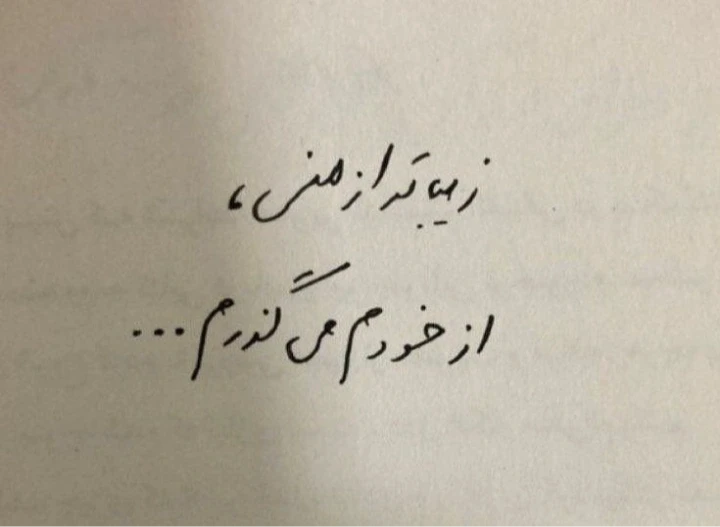 زیباتر از منی،
از خودم می گذرم...